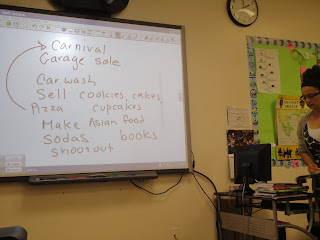 Carnival
Garage sale
Car wash
Sell cookies, cakes,
Pizza cupcakes
Make Asian food
sodas books
shootout